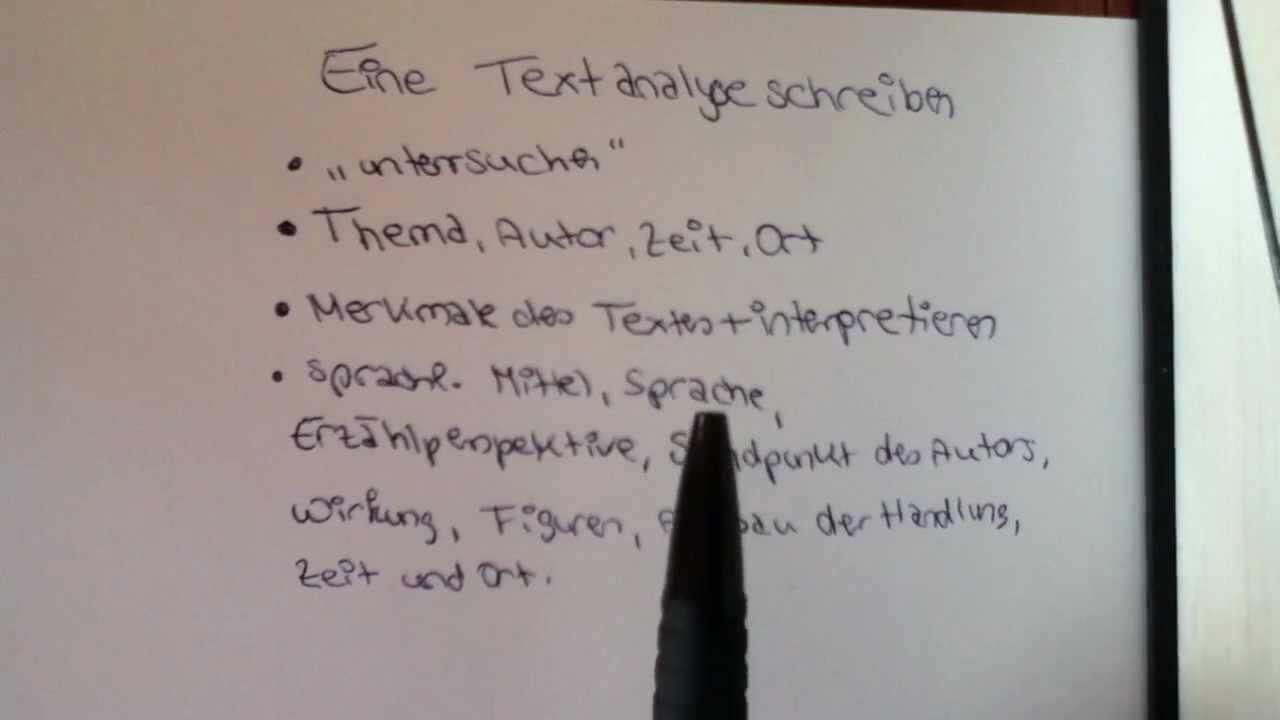 Eine Textanalyse schreiben
• „untersuchen“
• Thema, Autor, Zeit, Ort
• Merkmale des Textes + interpretieren
• Sprachl. Mittel, Sprache,
Erzählperspektive, Standpunkt des Autors,
Wirkung, Figuren, der Handlung,
Zeit und Ort.